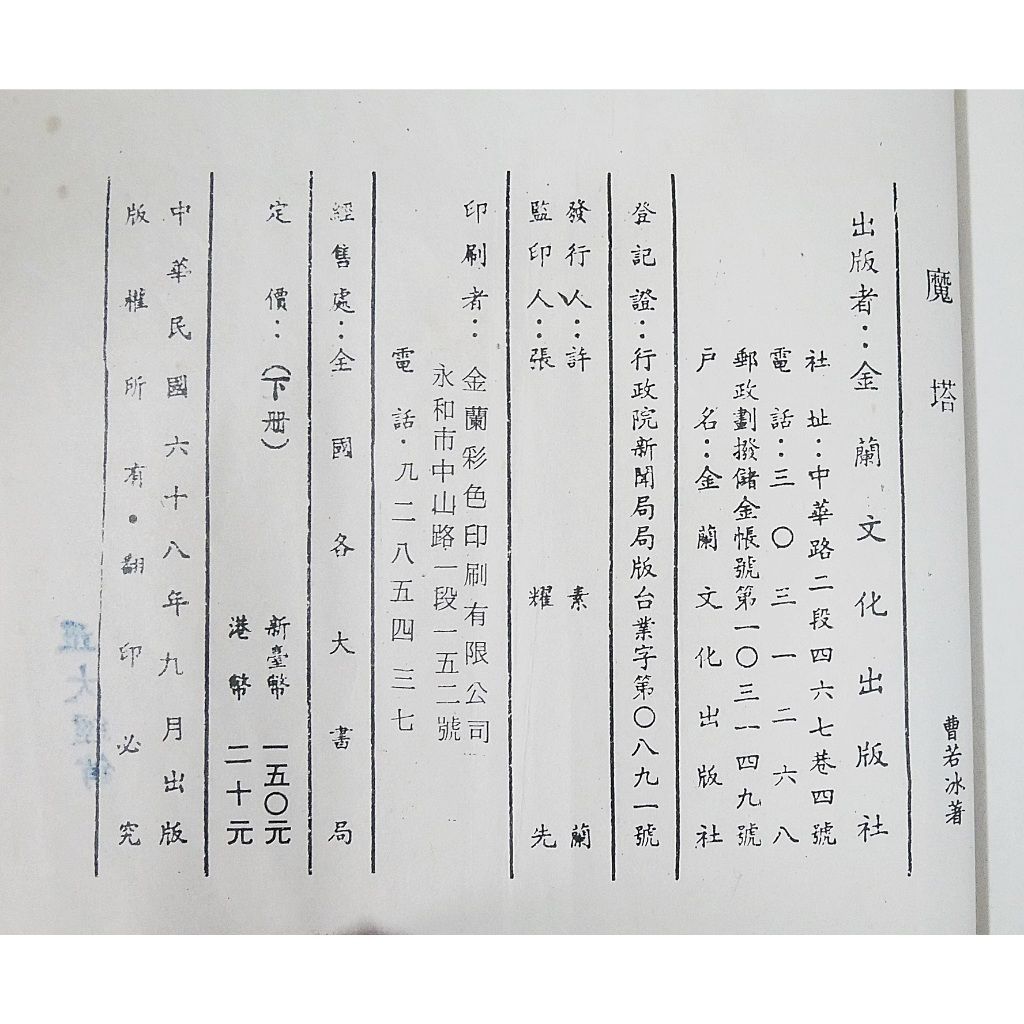 魔塔
曹若冰著
出版者：金蘭文化出版社
社址：中華路二段四六七巷四號
電話：三〇三一二六八
郵政劃撥儲金帳號第一〇三一四九號
戶名：金蘭文化出版社
登記證：行政院新聞局局版台業字第〇八九一號
發行人：許素蘭
監印人：張耀先
印刷者：金蘭彩色印刷有限公司
永和市中山路一段一五二號
電話．九二八五四三七
經售處：全國各大書局
定價：（下册）新臺幣一五〇元
港幣二十元
中華民國六十八年九月出版
版權所有•翻印必究